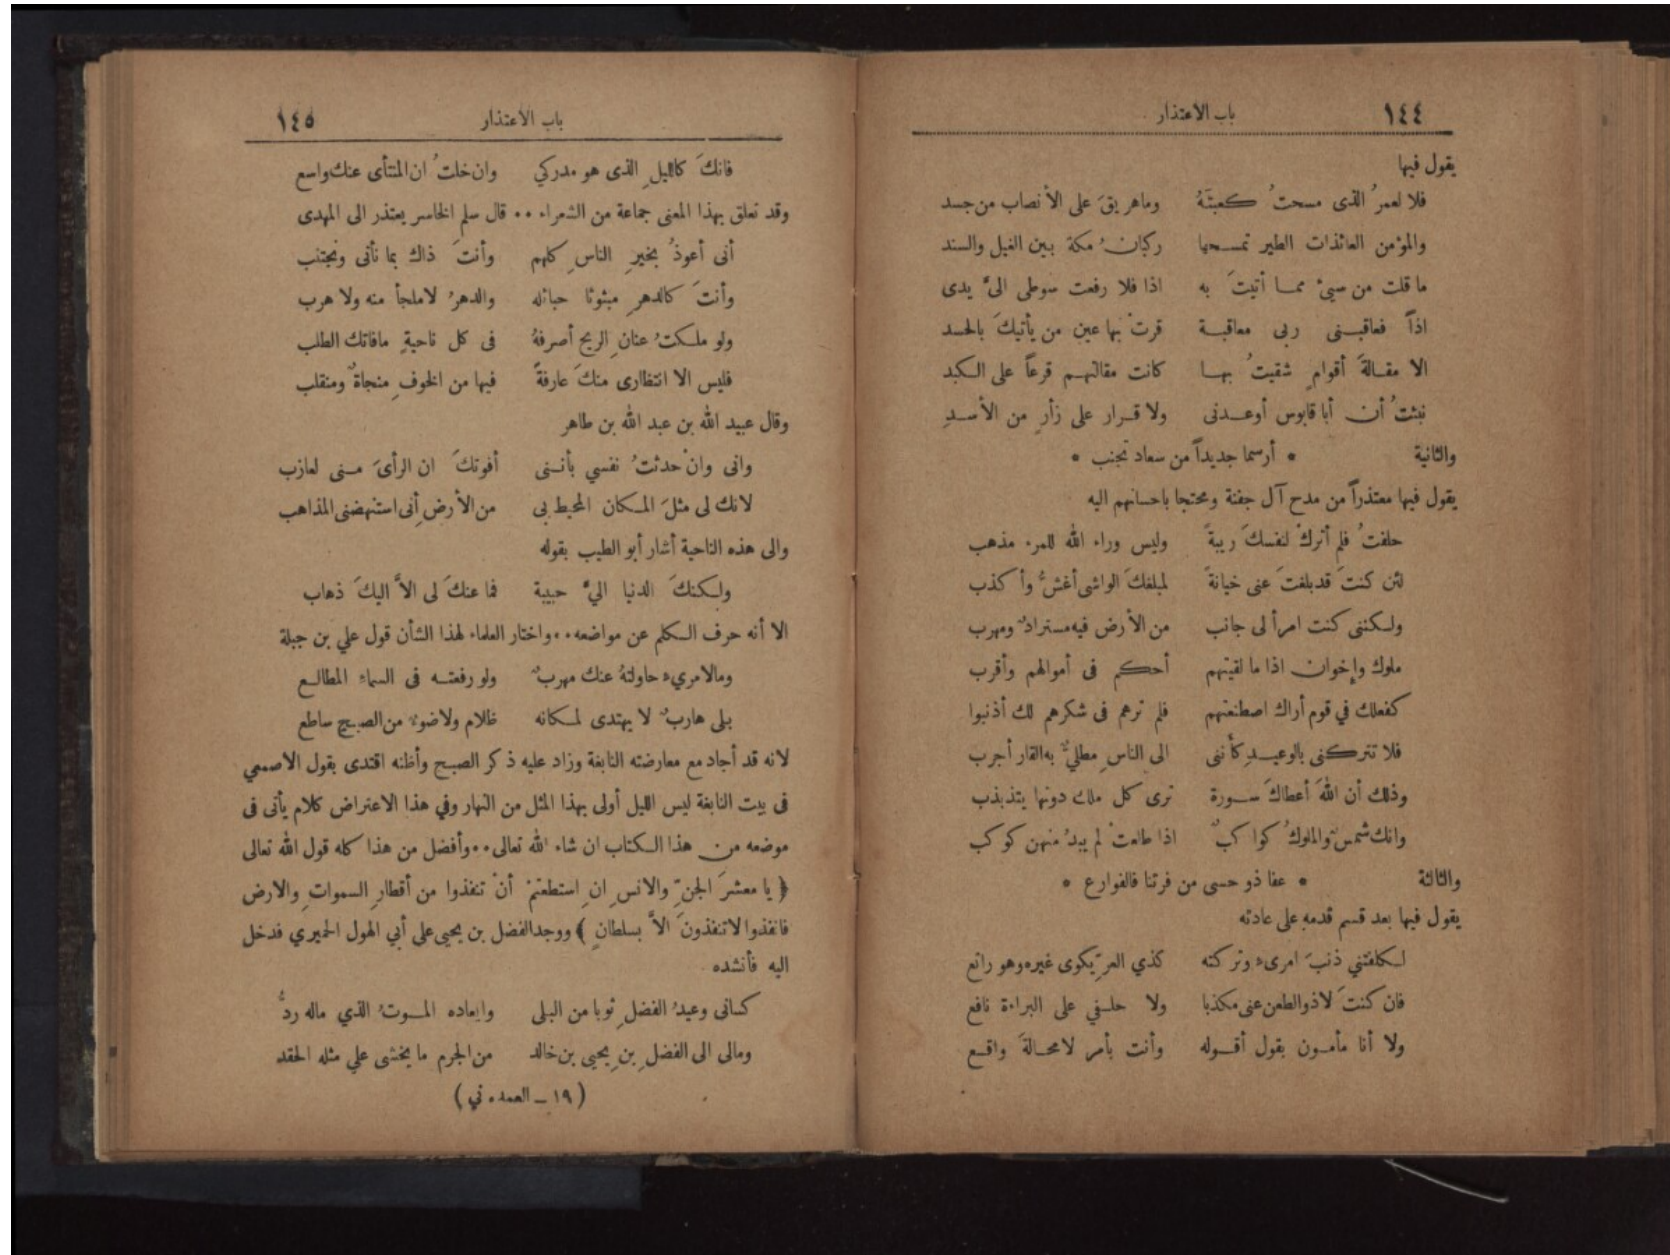 ١٤٤ باب الاعتذار
يقول فيها
فلا لعمرُ الذى مسحتُ كعبتَهُ وماهريقَ على الأنصاب من جسد
والمؤمن العائذات الطير تمسحها ركبانُ مكة بين الغيل والسند
ما قلت من سيئ مما أتيتَ به اذا فلا رفعت سوطى الىَّ يدى
اذاً فعاقبنى ربى معاقبة قرتْ بها عين من يأتيكَ بالحسد
الا مقالةَ أقوامٍ شقيتُ بها كانت مقالتهم قرعاً على الكبد
نبئتُ أن أبا قابوس أوعدنى ولا قرار على زأرٍ من الأسدِ
والثانية * أرسما جديداً من سعاد تجنب *
يقول فيها معتذراً من مدح آل جفنة ومحتجا باحسانهم اليه
حلفتُ فلم أتركْ لنفسكَ ريبةً وليس وراء الله للمرء مذهب
لئن كنتَ قد بلغتَ عنى خيانةً لمبلغكَ الواشى أغشُّ وأكذب
ولكننى كنت امرأ لى جانب من الأرض فيه مستراد ومهرب
ملوك وإخوان اذا ما لقيتهم أحكم فى أموالهم وأقرب
كفعلك في قوم أراك اصطنعتهم فلم ترهم فى شكرهم لك أذنبوا
فلا تتركنى بالوعيدِ كأننى الى الناسِ مطليٌّ به القار أجرب
وذلك أن اللهَ أعطاكَ سورة ترى كل ملك دونها يتذبذب
وانك شمسٌ والملوكُ كواكبٌ اذا طلعتْ لم يبدُ منهن كوكب
والثالثة * عفا ذو حسى من فرتنا فالفوارع *
يقول فيها بعد قسم قدمه على عادته
لكلفتني ذنبَ امرىء وتركته كذي العرِّ يكوى غيره وهو راتع
فان كنتَ لاذو الطعن عنى مكذبا ولا حلفي على البراءة نافع
ولا أنا مأمون بقول أقوله وأنت بأمر لامحالةَ واقع
باب الاعتذار ١٤٥
فانكَ كالليلِ الذى هو مدركي وان خلتُ ان المنتأى عنك واسع
وقد تعلق بهذا المعنى جماعة من الشعراء ٠٠ قال سلم الخاسر يعتذر الى المهدى
أنى أعوذُ بخيرِ الناسِ كلهم وأنتَ ذاك بما نأتى ونجتنب
وأنتَ كالدهرِ مبثوثا حبائله والدهرُ لاملجأ منه ولا هرب
ولو ملكتُ عنان الريح أصرفهُ فى كل ناحيةٍ مافاتك الطلب
فليس الا انتظارى منكَ عارفةً فيها من الخوفِ منجاةٌ ومنقلب
وقال عبيد الله بن عبد الله بن طاهر
وانى وانْ حدثتُ نفسي بأننى أفوتكَ ان الرأىَ منى لعازب
لانك لى مثلَ المكان المحيط بى من الأرضِ أنى استنهضنى المذاهب
والى هذه الناحية أشار أبو الطيب بقوله
ولكنكَ الدنيا اليَّ حبيبة فما عنكَ لى الاَّ اليكَ ذهاب
الا أنه حرف الكلم عن مواضعه ٠٠ واختار العلماء لهذا الشأن قول علي بن جبلة
ومالامرىء حاولتهُ عنك مهربٌ ولو رفعته فى السماءِ المطالع
بلى هاربٌ لا يهتدى لمكانه ظلام ولاضوء من الصبح ساطع
لانه قد أجاد مع معارضته النابغة وزاد عليه ذكر الصبح وأظنه اقتدى بقول الاصمعي
فى بيت النابغة ليس الليل أولى بهذا المثل من النهار وفي هذا الاعتراض كلام يأتى فى
موضعه من هذا الكتاب ان شاء الله تعالى ٠٠ وأفضل من هذا كله قول الله تعالى
﴿ يا معشرَ الجنِّ والانسِ ان استطعتمْ أنْ تنفذوا من أقطارِ السمواتِ والارض
فانفذوا لاتنفذونَ الاَّ بسلطانٍ ﴾ ووجد الفضل بن يحيى على أبي الهول الحميري فدخل
اليه فأنشده
كسانى وعيدُ الفضلِ ثوبا من البلى وايعاده الموتُ الذي ماله ردُّ
ومالى الى الفضلِ بنِ يحيى بن خالد من الجرم ما يخشى علي مثله الحقد
(١٩ ـ العمده ني)